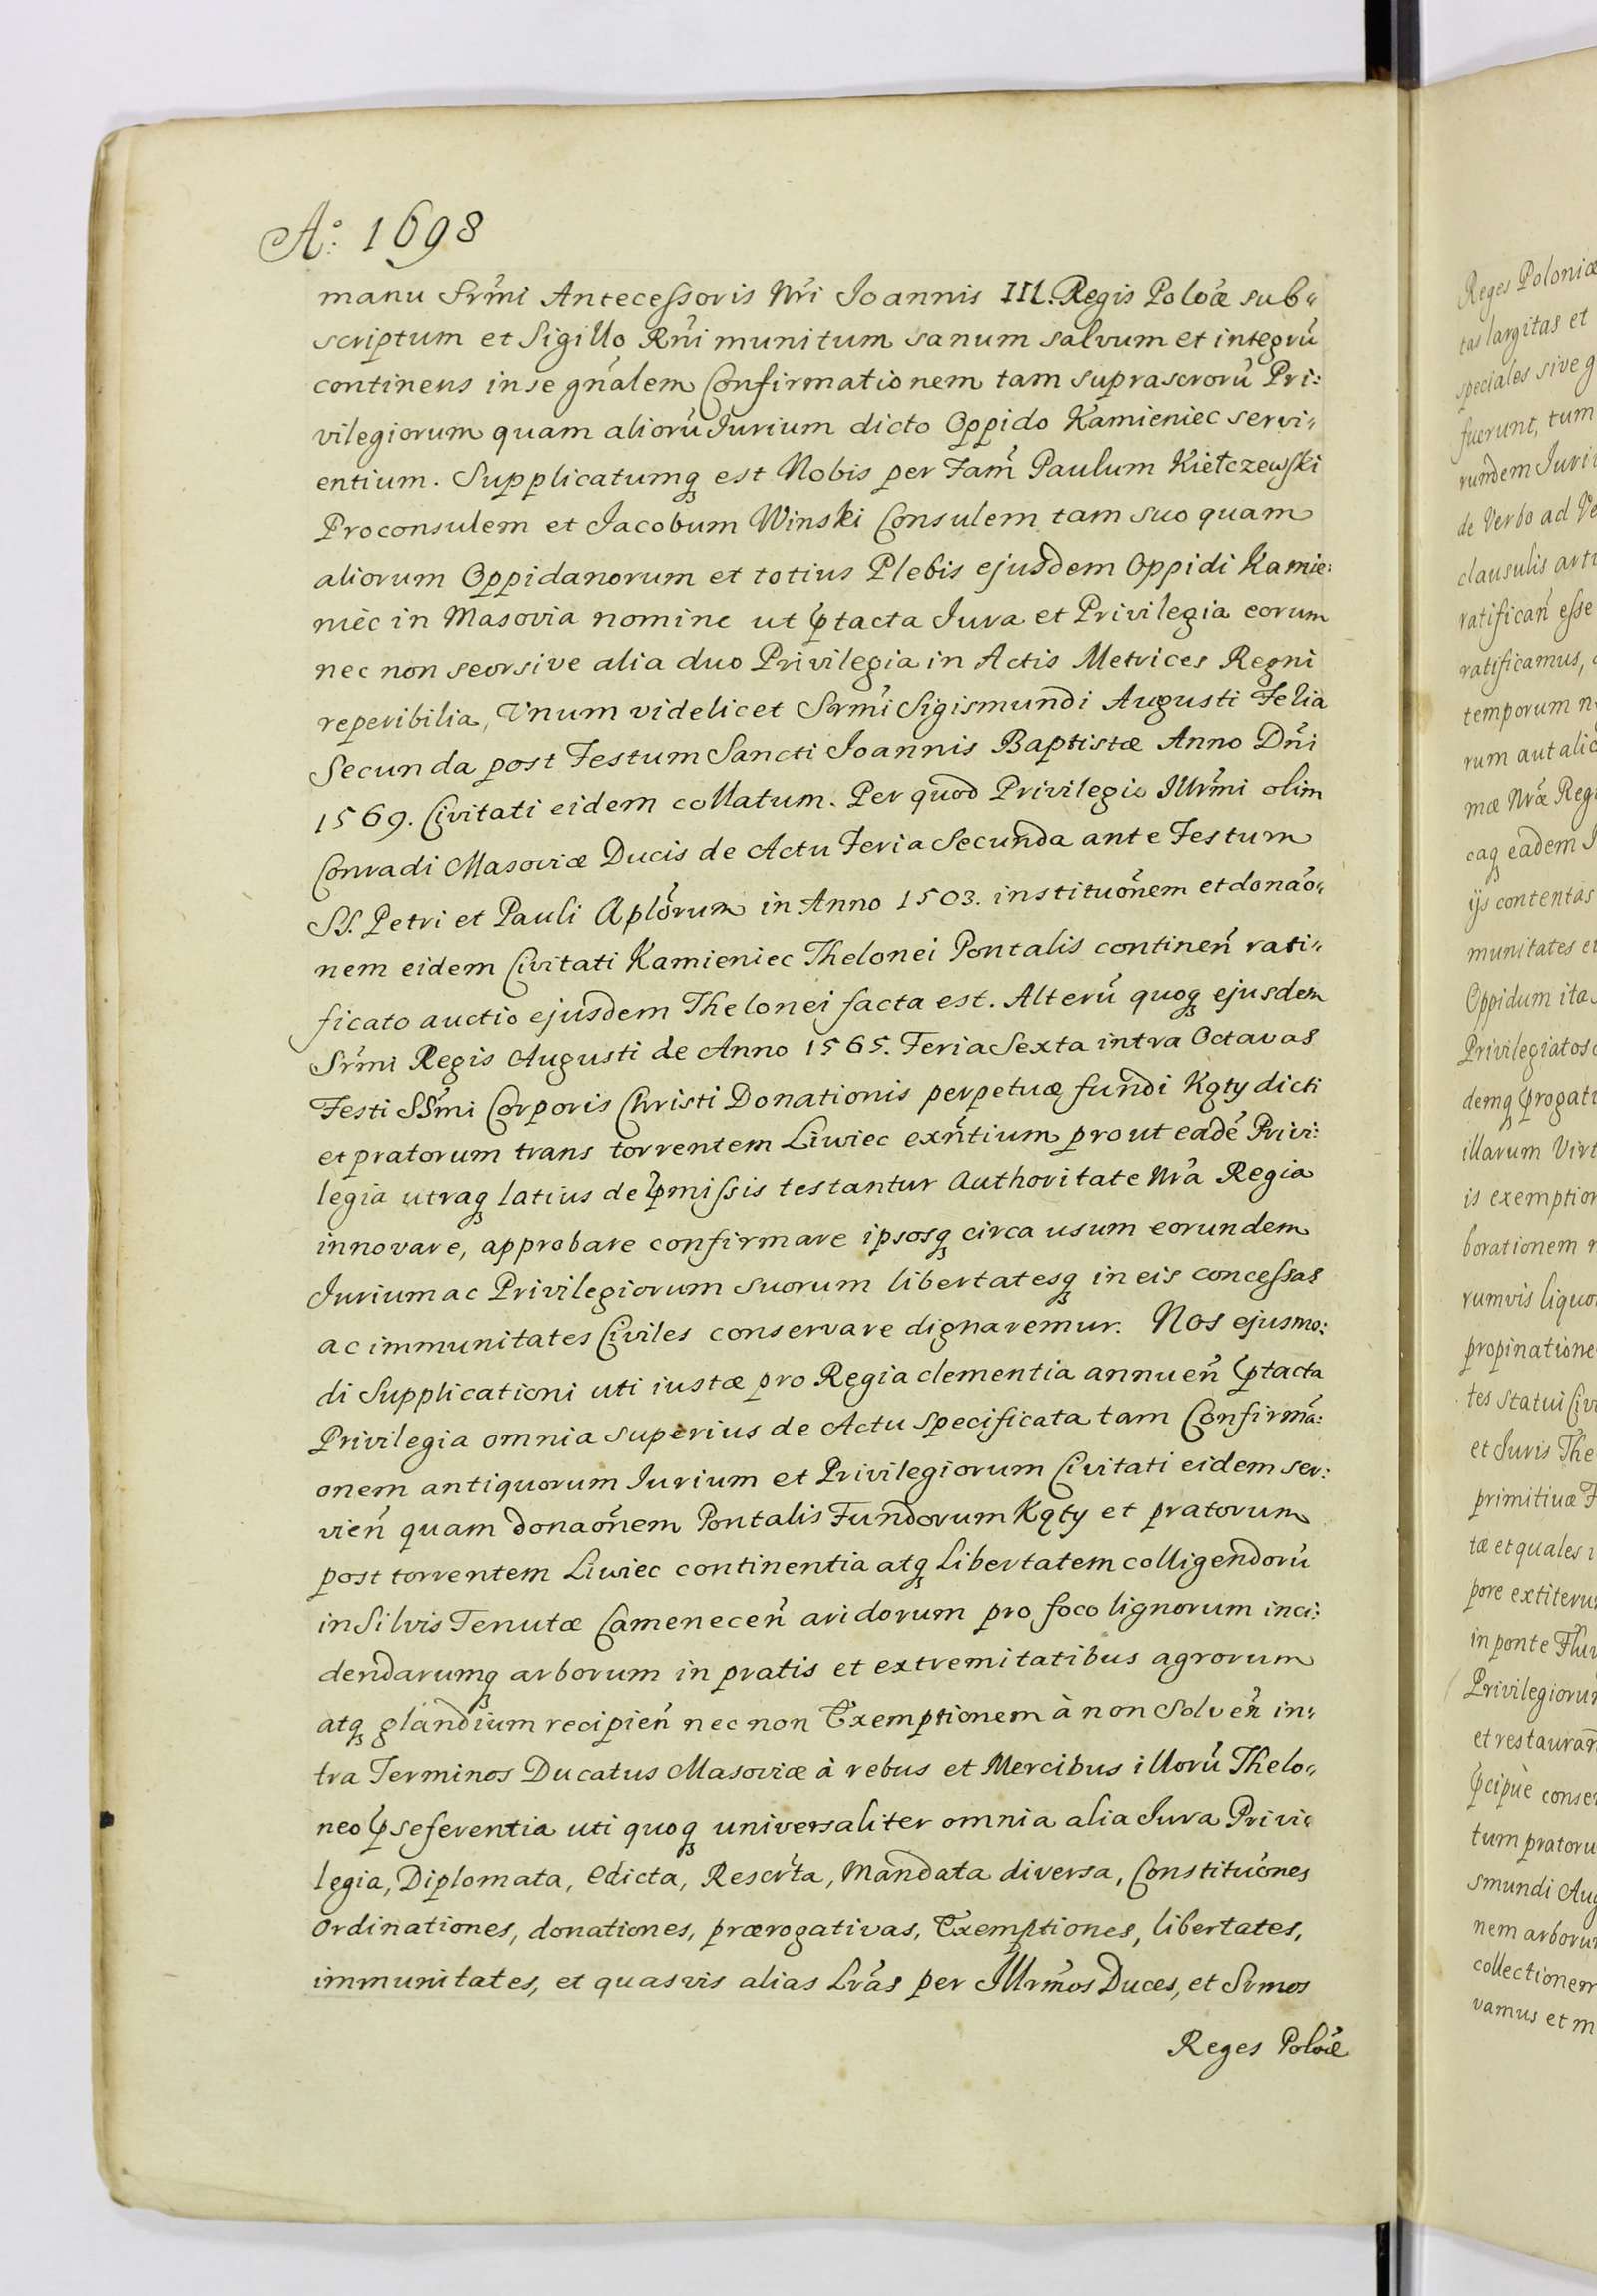 Aº. 1698
manu Srm̃i Antecessoris Nr̃i Joannis III. Regis Polõæ sub„
scriptum et Sigillo Rñi munitum sanum salvum et integrũ
continens in se gñalem Confirmationem tam suprascrorũ Pri:
vilegiorum quam aliorũ Jurium dicto Oppido Kamieniec servi„
entium. Supplicatumq̃ est Nobis per Fam̃ Paulum Kiełczewski
Proconsulem et Jacobum Winski Consulem tam suo quam
aliorum Oppidanorum et totius Plebis ejusdem Oppidi Kamie:
niec in Masovia nomine ut p̃tacta Jura et Privilegia eorum
nec non seorsive alia duo Privilegia in Actis Metrices Regni
reperibilia, Vnum videlicet Srm̃i Sigismundi Augusti Felia
Secunda post Festum Sancti Joannis Baptistæ Anno Dñi
1569. Civitati eidem collatum. Per quod Privilegio Illrm̃i olim
Conradi Masoviæ Ducis de Actu Feria Secunda ante Festum
SS. Petri et Pauli Aplõrum in Anno 1503. instituõnem et donaõ„
nem eidem Civitati Kamieniec Thelonei Pontalis contineñ rati„
ficato auctio ejusdem Thelonei facta est. Alterũ quoq̃ ejusdem
Srm̃i Regis Augusti de Anno 1565. Feria Sexta intra Octavas
Festi SSm̃i Corporis Christi Donationis perpetuæ fundi Kąty dicti
et pratorum trans torrentem Liwiec exñtium prout eadẽ Privi:
legia utraq̃ latius de p̃missis testantur Authoritate Nr̃a Regia
innovare, approbare confirmare ipsosq̃ circa usum eorundem
Jurium ac Privilegiorum suorum libertatesq̃ in eis concessas
ac immunitates Civiles conservare dignaremur. Nos ejusmo:
di Supplicationi uti iustæ pro Regia clementia annueñ p̃tacta
Privilegia omnia superius de Actu specificata tam Confirmã:
onem antiquorum Jurium et Privilegiorum Civitati eidem ser:
vieñ quam donaõnem Pontalis Fundorum Kąty et pratorum
post torrentem Liwiec continentia atq̃ Libertatem colligendorũ
in Silvis Tenutæ Cameneceñ aridorum pro foco lignorum inci:
dendarumq̃ arborum in pratis et extremitatibus agrorum
atq̃ glandium recipieñ nec non Exemptionem à non Solveñ in„
tra Terminos Ducatus Masoviæ à rebus et Mercibus illorũ Thelo„
neo p̃seferentia uti quoq̃ universaliter omnia alia Jura Privi„
legia, Diplomata, Edicta, Rescr̃ta, Mandata diversa, Constituõnes
Ordinationes, donationes, prærogativas, Exemptiones, libertates,
immunitates, et quasvis alias Lr̃as per Illrm̃os Duces, et Srmos
Reges Polõæ
Reges Poloniæ
tas largitas et
speciales sive g
fuerunt, tum
rundem Juri
de Verbo ad Ve
clausulis arti
ratificañ esse
ratificamus,
temporum n
rum aut alic
mæ Nr̃æ Reg
eaq̃ eadem J
ijs contentas
munitates e
Oppidum ita
Privilegiatos
demq̃ p̃rogati
illarum Virt
is exemption
borationem
rumvis liquo
propinatione
tes statui Civ
et Juris The
primitivæ F
tæ et quales
pore extiteru
in ponte Flu
Privilegioru
et restauran
p̃cipuè conse
tum pratoru
smundi Aug
nem arboru
collectionem
vamus et m